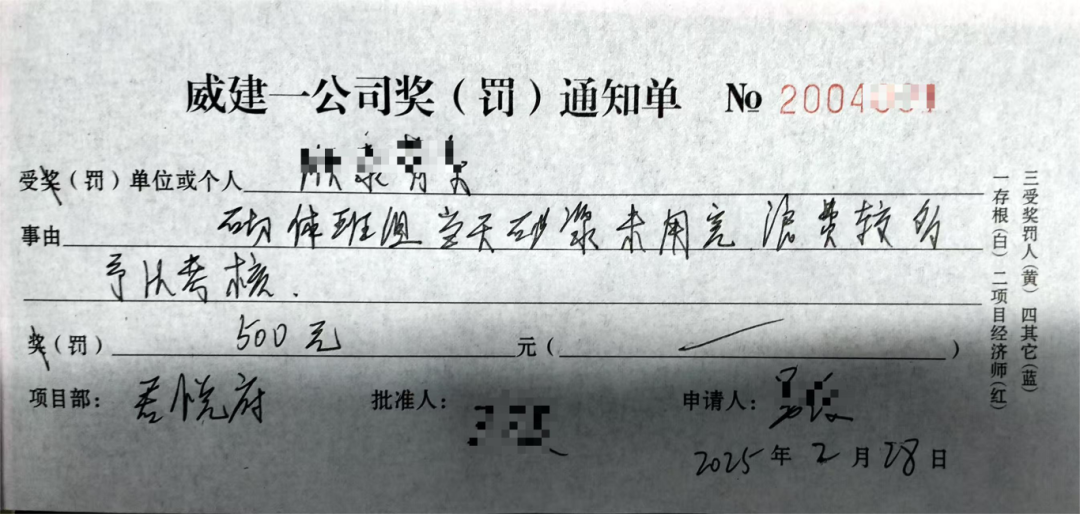 威建一公司奖（罚）通知单 № 2004
受奖（罚）单位或个人
事由 砌体班组当天砂浆未用完，浪费较多
予以考核.
奖（罚） 500元 元（ ）
项目部： 君悦府 批准人： 申请人：
2025年2月28日
一存根(白) 二项目经济师(红)
三受奖罚人(黄) 四其它(蓝)